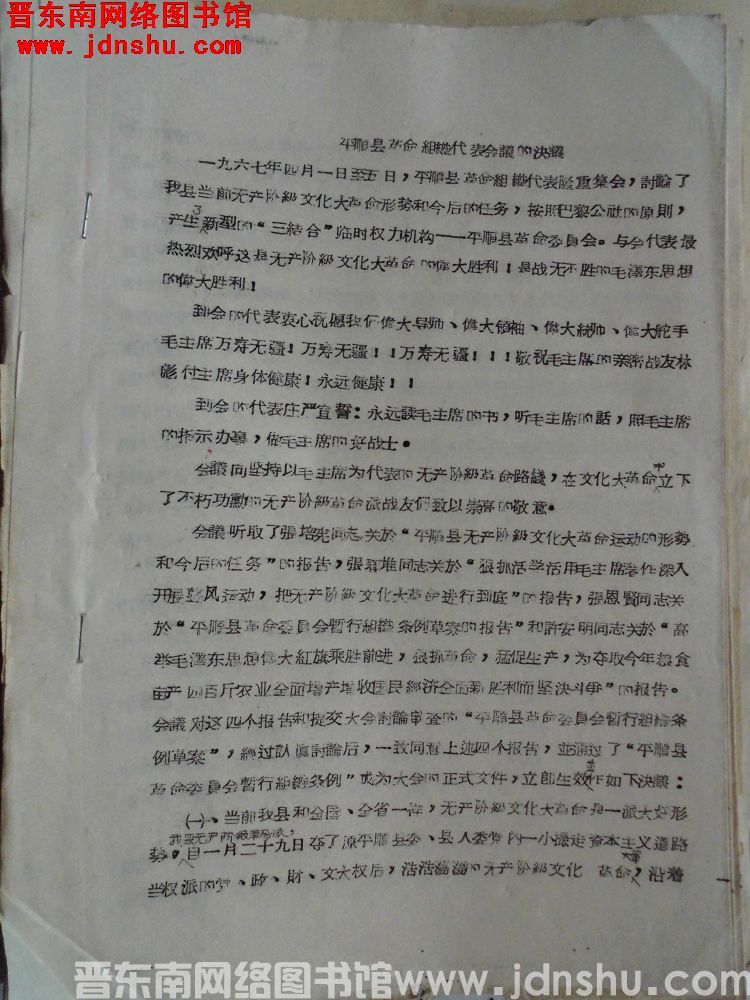 晋东南网络图书馆
www.jdnshu.com
平顺县革命組織代表会議的決議
一九六七年四月一日至五日，平顺县革命組織代表隆重集会，討論了
我县当前无产阶級文化大革命形势和今后的任务，按照巴黎公社的原則，
产生了新型的“三結合”临时权力机构——平顺县革命委員会。与会代表最
热烈欢呼这是无产阶級文化大革命的偉大胜利！是战无不胜的毛澤东思想
的偉大胜利！
到会的代表衷心祝愿我们偉大导师、偉大領袖、偉大統帅、偉大舵手
毛主席万寿无疆！万寿无疆！！万寿无疆！！！敬祝毛主席的亲密战友林
彪付主席身体健康！永远健康！！
到会的代表庄严宣誓：永远讀毛主席的书，听毛主席的話，照毛主席
的指示办事，做毛主席的好战士。
会議向坚持以毛主席为代表的无产阶級革命路綫，在文化大革命中立下
了不朽功勳的无产阶級革命派战友们致以崇高的敬意。
会議听取了張培宪同志关於“平顺县无产阶級文化大革命运动的形势
和今后的任务”的报告，張 堆同志关於“狠抓活学活用毛主席著作深入
开展整风运动，把无产阶級文化大革命进行到底”的报告，張恩賢同志关
於“平顺县革命委員会暫行組織条例草案的报告”和許安明同志关於“高
举毛澤东思想偉大紅旗乘胜前进，狠抓革命，猛促生产，为夺取今年粮食
亩产四百斤农业全面增产增收国民經济全面新胜利而坚决斗争”的报告。
会議对这四个报告和提交大会討論审查的“平顺县革命委員会暫行組織条
例草案”，經过认真討論后，一致同意上述四个报告，並通过了“平顺县
革命委員会暫行組織条例”成为大会的正式文件，立即生效並作如下決議：
㈠、当前我县和全国、全省一样，无产阶級文化大革命是一派大好形
势。我县无产阶級革命派，自一月二十九日夺了原平顺县委、县人委党内一小撮走资本主义道路
当权派的党、政、財、文大权后，浩浩蕩蕩的无产阶級文化大革命，沿着
晋东南网络图书馆www.jdnshu.com